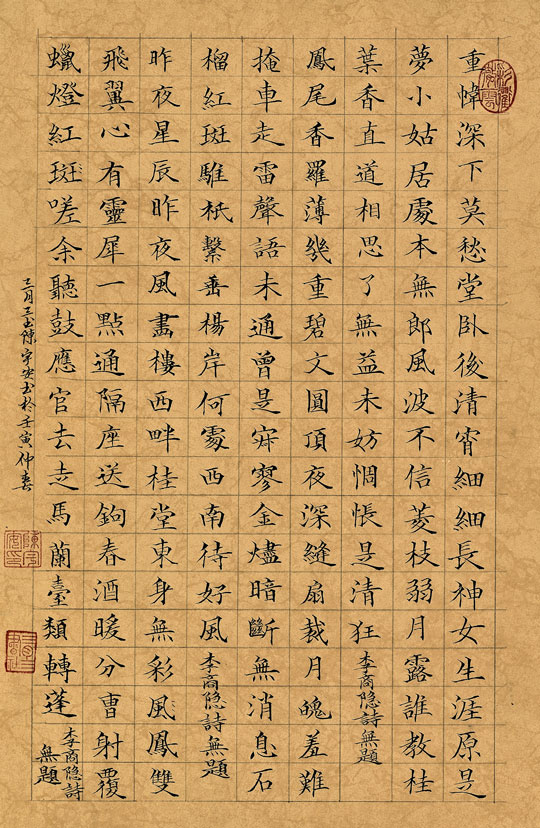 重幃深下莫愁堂卧後清宵細細長神女生涯原是
夢小姑居處本無郎風波不信菱枝弱月露誰教桂
葉香直道相思了無益未妨惆悵是清狂李商隐詩無題
鳳尾香羅薄幾重碧文圓頂夜深縫扇裁月魄羞難
掩車走雷聲語未通曾是寂寥金燼暗斷無消息石
榴紅斑騅秖繫垂楊岸何處西南待好風李商隐詩無題
昨夜星辰昨夜風畫樓西畔桂堂東身無彩風鳳雙
飛翼心有靈犀一點通隔座送鉤春酒暖分曹射覆
蠟燈紅斑嗟余聽鼓應官去走馬蘭臺類轉蓬李商隐詩
無題
三月三陳宇安书於壬寅仲春